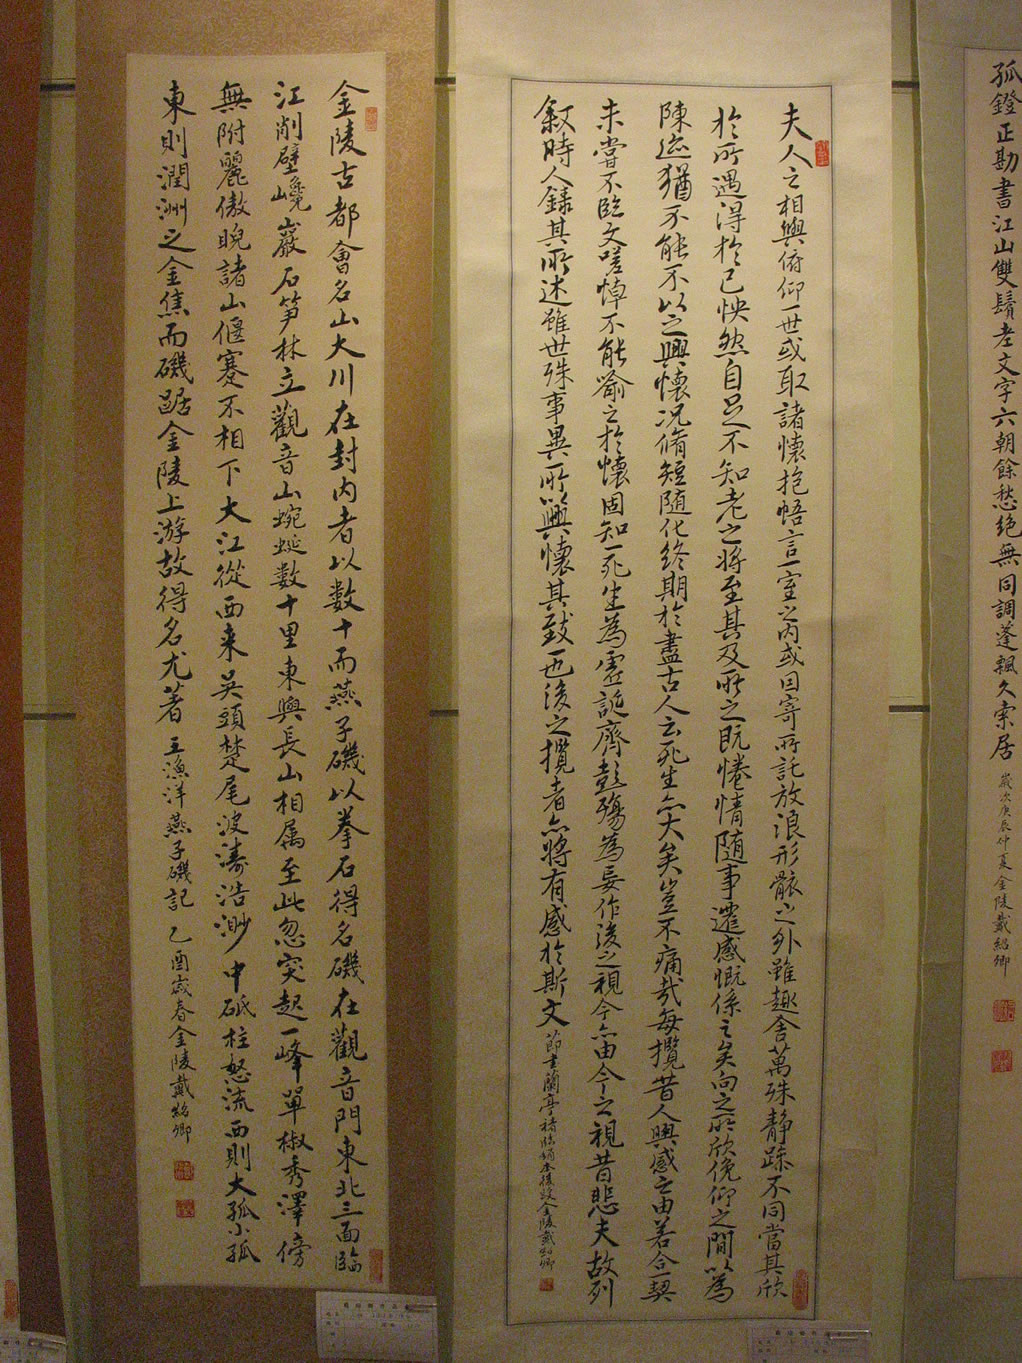 孤鐙正勘書江山雙鬢老文字六朝餘愁絕無同調蓬飄久索居
歲次庚辰仲夏金陵戴紹卿
夫人之相與俯仰一世或取諸懷抱悟言一室之內或因寄所託放浪形骸之外雖趣舍萬殊靜躁不同當其欣
於所遇得於己怏然自足不知老之將至其及所之既惓情隨事遷感慨係之矣向之所欣俛仰之間以為
陳迹猶不能不以之興懷況脩短隨化終期於盡古人云死生亦大矣豈不痛哉每攬昔人興感之由若合一契
未嘗不臨文嗟悼不能喻之於懷固知一死生為虛誕齊彭殤為妄作後之視今亦由今之視昔悲夫故列
敘時人錄其所述雖世殊事異所以興懷其致一也後之攬者亦將有感於斯文
金陵戴紹卿
金陵古都會名山大川在封內者以數十而燕子磯以拳石得名磯在觀音門東北三面臨
江削壁巉巖石笋林立觀音山蜿蜒數十里東與長山相属至此忽突起一峰單椒秀澤傍
無附麗傲睨諸山偃蹇不相下大江從西来吳頭楚尾波濤浩渺中砥柱怒流西則大孤小孤
東則潤洲之金焦而磯踞金陵上游故得名尤著 王漁洋燕子磯記 乙酉歲春金陵戴紹卿